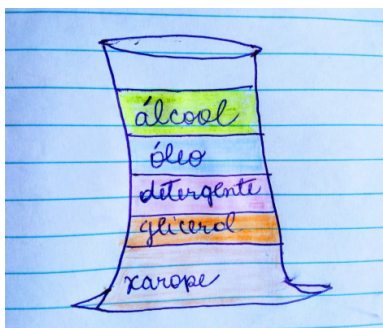 álcool
óleo
detergente
glicerol
xarope